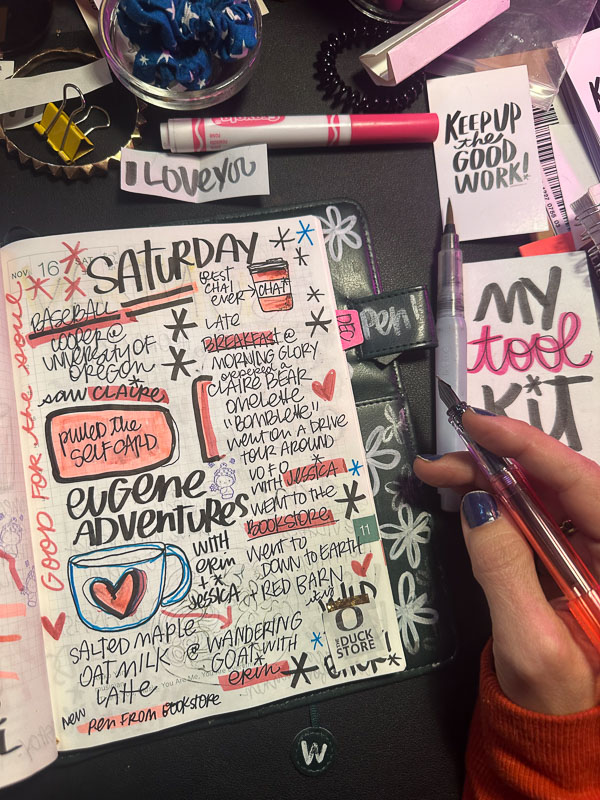 Crayola
I LOVE YOU
KEEP UP
the
GOOD
WORK!
MY
tool
KIT
NOV 16 SAT
SATURDAY
GOOD FOR the SOUL
BASEBALL
COOPER @
UNIVERSITY OF
OREGON
SAW CLAIRE
PULLED THE
SELF CARD
EUGENE
ADVENTURES
WITH
erin
+
JESSICA
SALTED MAPLE
OAT MILK
LATTE
@ WANDERING
GOAT WITH
erin
new
PEN FROM BOOKSTORE
BEST
CHAI
EVER
CHAI
LATE
BREAKFAST @
MORNING GLORY
ordered a
CLAIRE BEAR
OMELETTE
"BOMBLETTE"
WENT ON A DRIVE
TOUR AROUND
U O F O
WITH JESSICA
WENT TO THE
BOOKSTORE
WENT TO
DOWN TO EARTH
+ RED BARN
O
THE DUCK
STORE
DEC
pen!
11
W